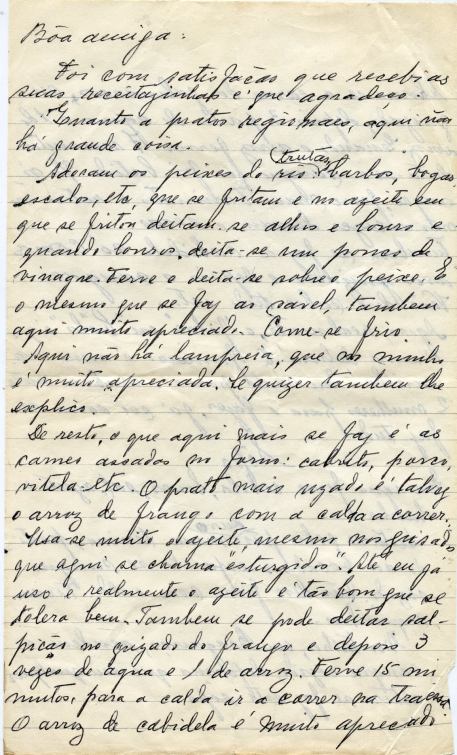 Bôa amiga:
Foi com satisfação que recebi as
suas receitazinhas e que agradeço.
Quanto a pratos regionais, aqui não
há grande coisa.
Adoram os peixes do rio (trutas) barbos, bogas,
escalos, etc, que se fritam e no azeite em
que se fritou deitam-se alhos e louro e
quando louros, deita-se um pouco de
vinagre. Ferve e deita-se sobre o peixe. E
o mesmo que se faz ao sável, tambem
aqui muito apreciado. Come-se frio
Aqui não há lampreia, que no minho
é muito apreciada. Se quizer tambem lhe
explico.
De resto, o que aqui mais se faz é as
carnes assadas no forno: cabrito, porco,
vitela etc. O prato mais uzado é talvez
o arroz de frango com a calda a correr.
Usa-se muito o azeite, mesmo nos guisados
que aqui se chama "esturgidos". Até eu já
uso e realmente o azeite é tão bom que se
tolera bem. Tambem se pode deitar sal-
picão no guizado do frango e depois 3
vezes de água e 1 de arroz. Ferve 15 mi
nutos, para a calda ir a correr na travessa.
O arroz de cabidela é muito apreciado